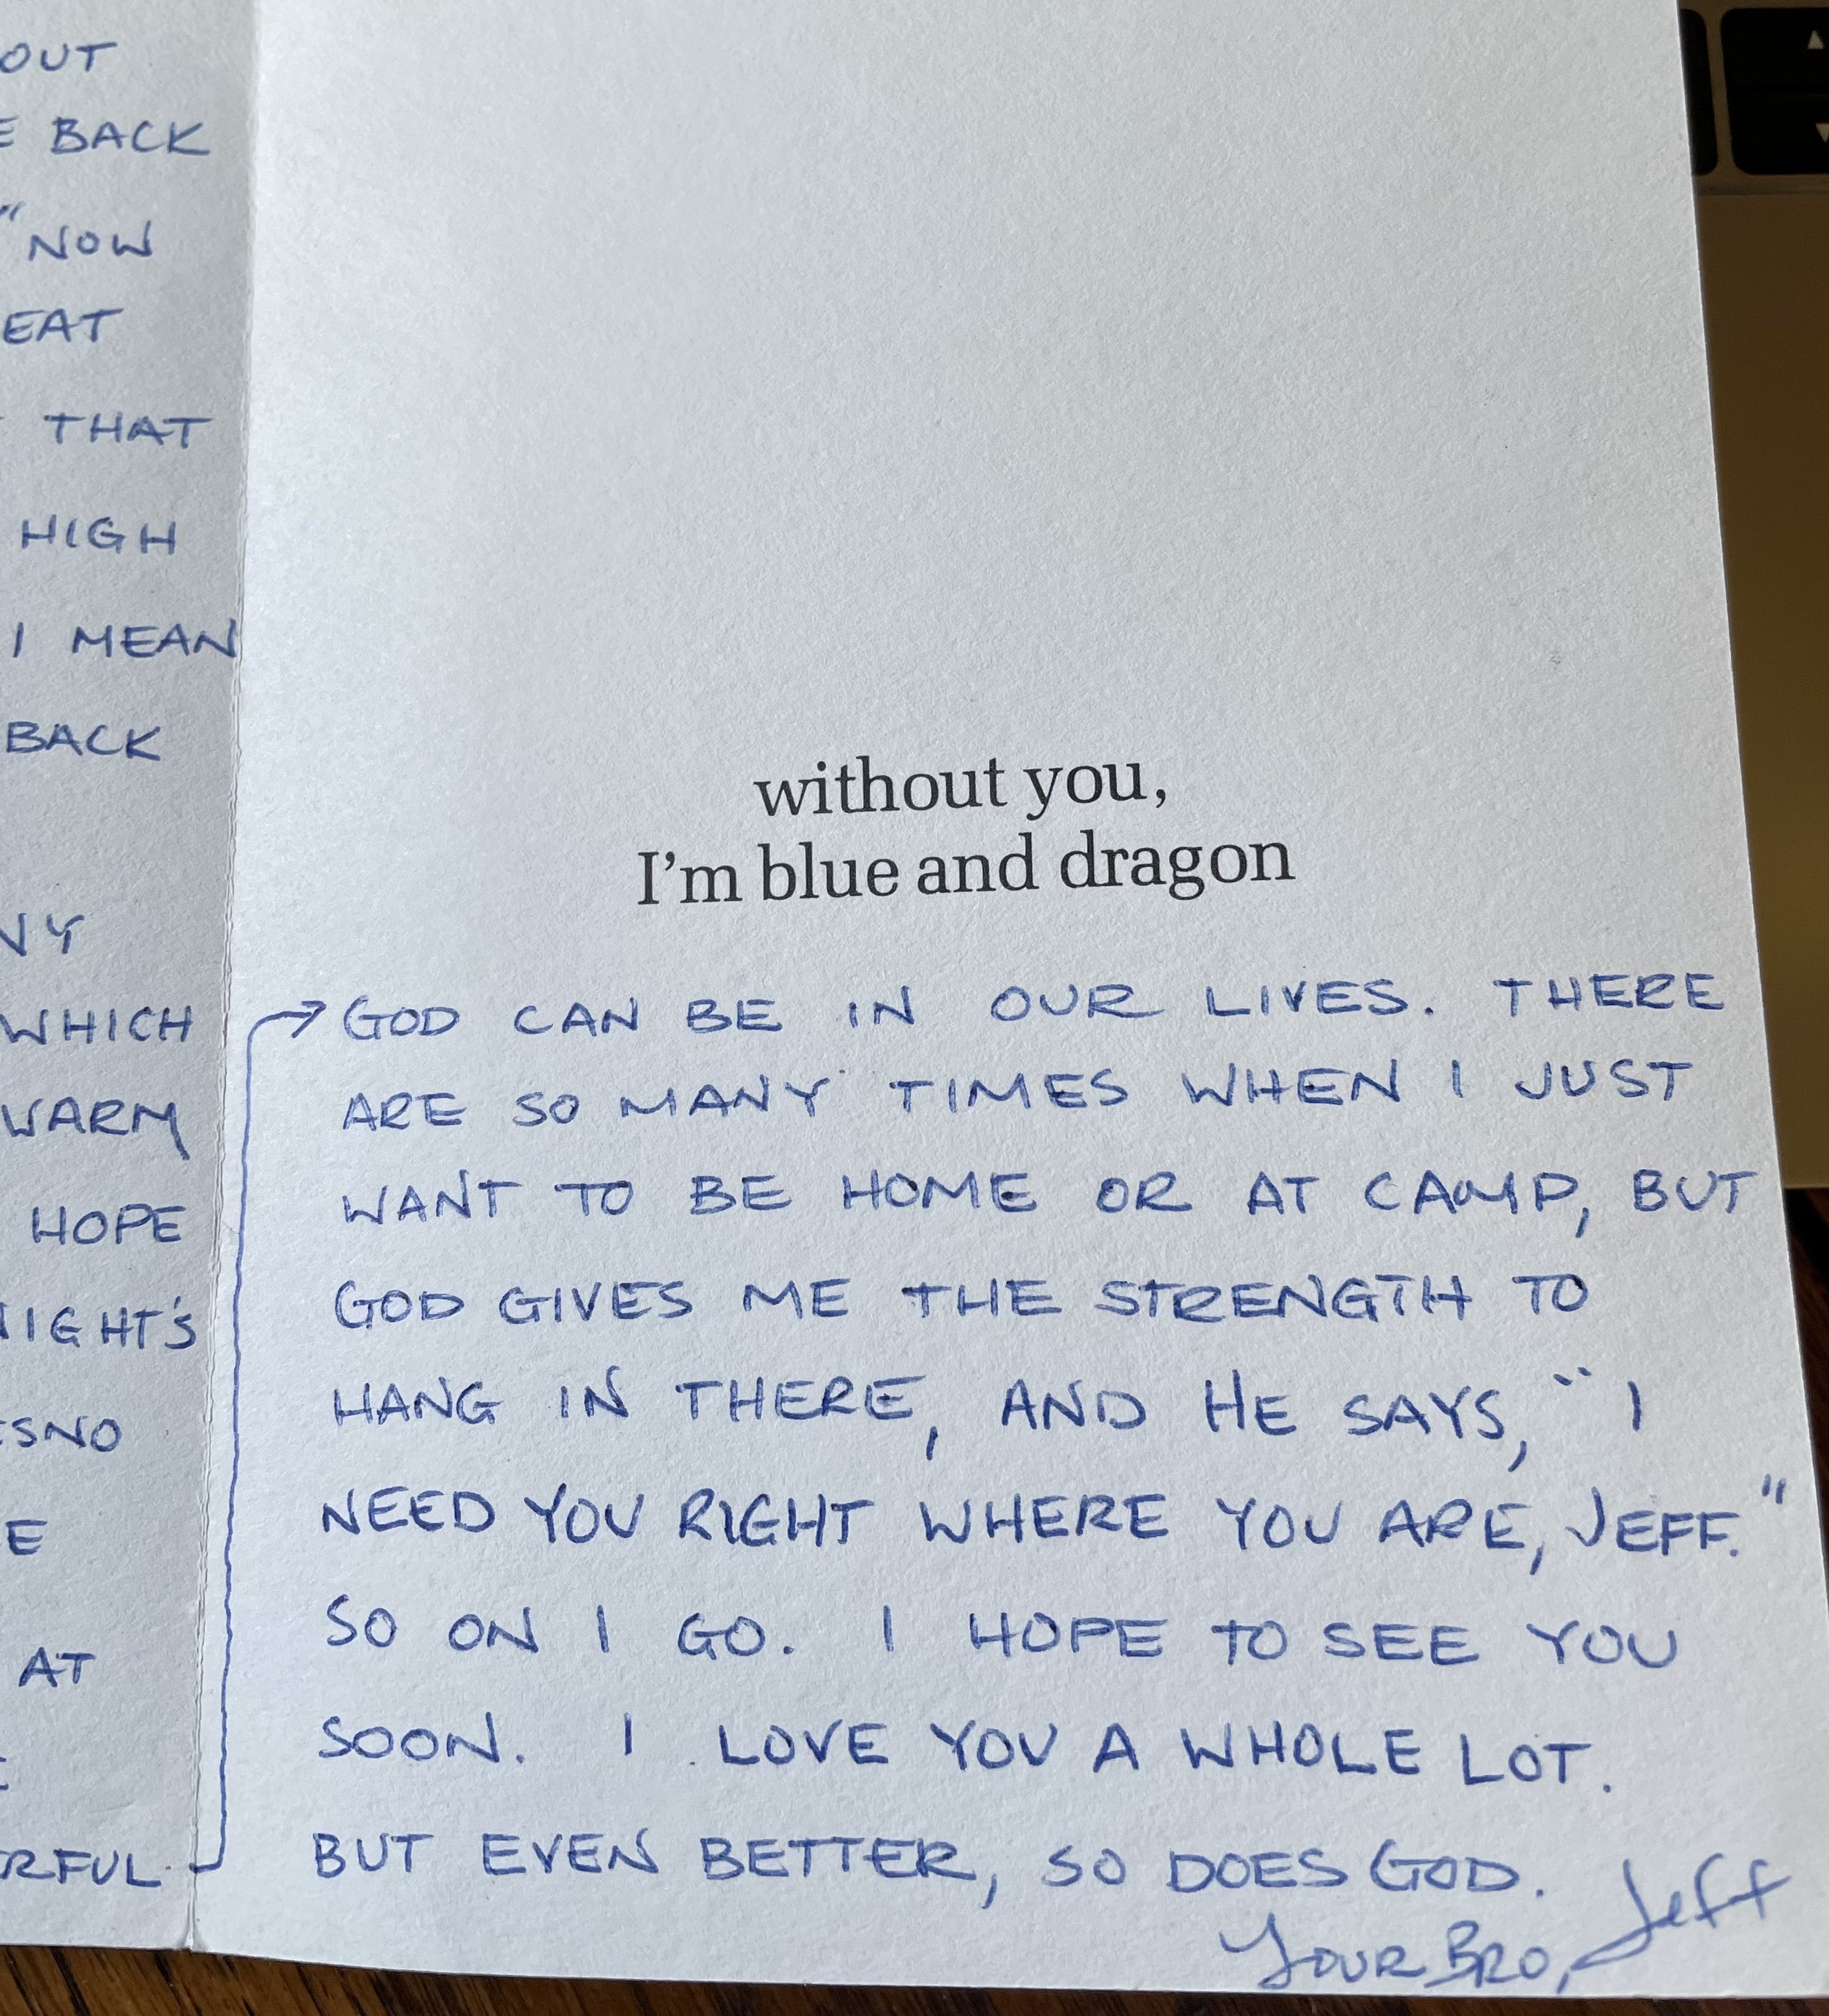 OUT
BACK
"NOW
THAT
HIGH
I MEAN
BACK
WHICH
WARM
HOPE
AT
without you,
I'm blue and dragon
GOD CAN BE IN OUR LIVES. THERE
ARE SO MANY TIMES WHEN I JUST
WANT TO BE HOME OR AT CAMP, BUT
GOD GIVES ME THE STRENGTH TO
HANG IN THERE, AND HE SAYS, "I
NEED YOU RIGHT WHERE YOU ARE, JEFF."
SO ON I GO. I HOPE TO SEE YOU
SOON. I LOVE YOU A WHOLE LOT.
BUT EVEN BETTER, SO DOES GOD.
YOUR BRO, Jeff